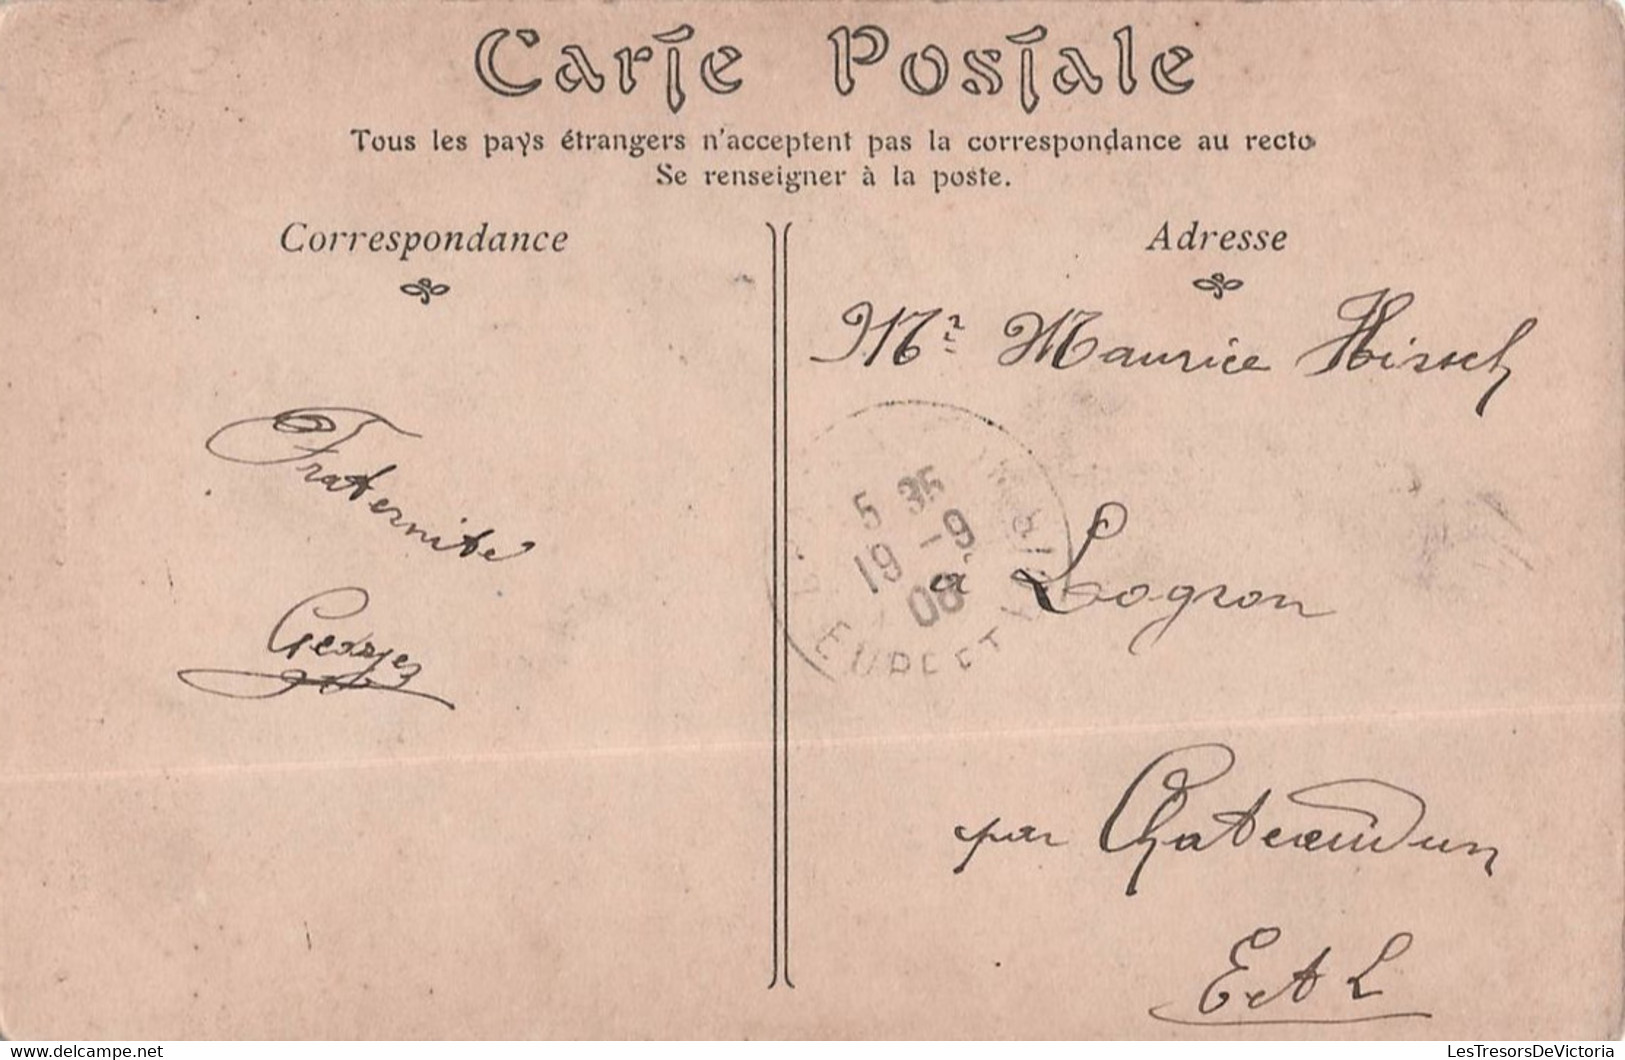 Carte Postale
Tous les pays étrangers n'acceptent pas la correspondance au recto
Se renseigner à la poste.
Correspondance
Adresse
Fraternité
Georges
Mr Maurice Hirsch
5 35
19 -9
08
EURE ET LOIR
à Logron
par Chateaudun
E et L
www.delcampe.net
LesTresorsDeVictoria